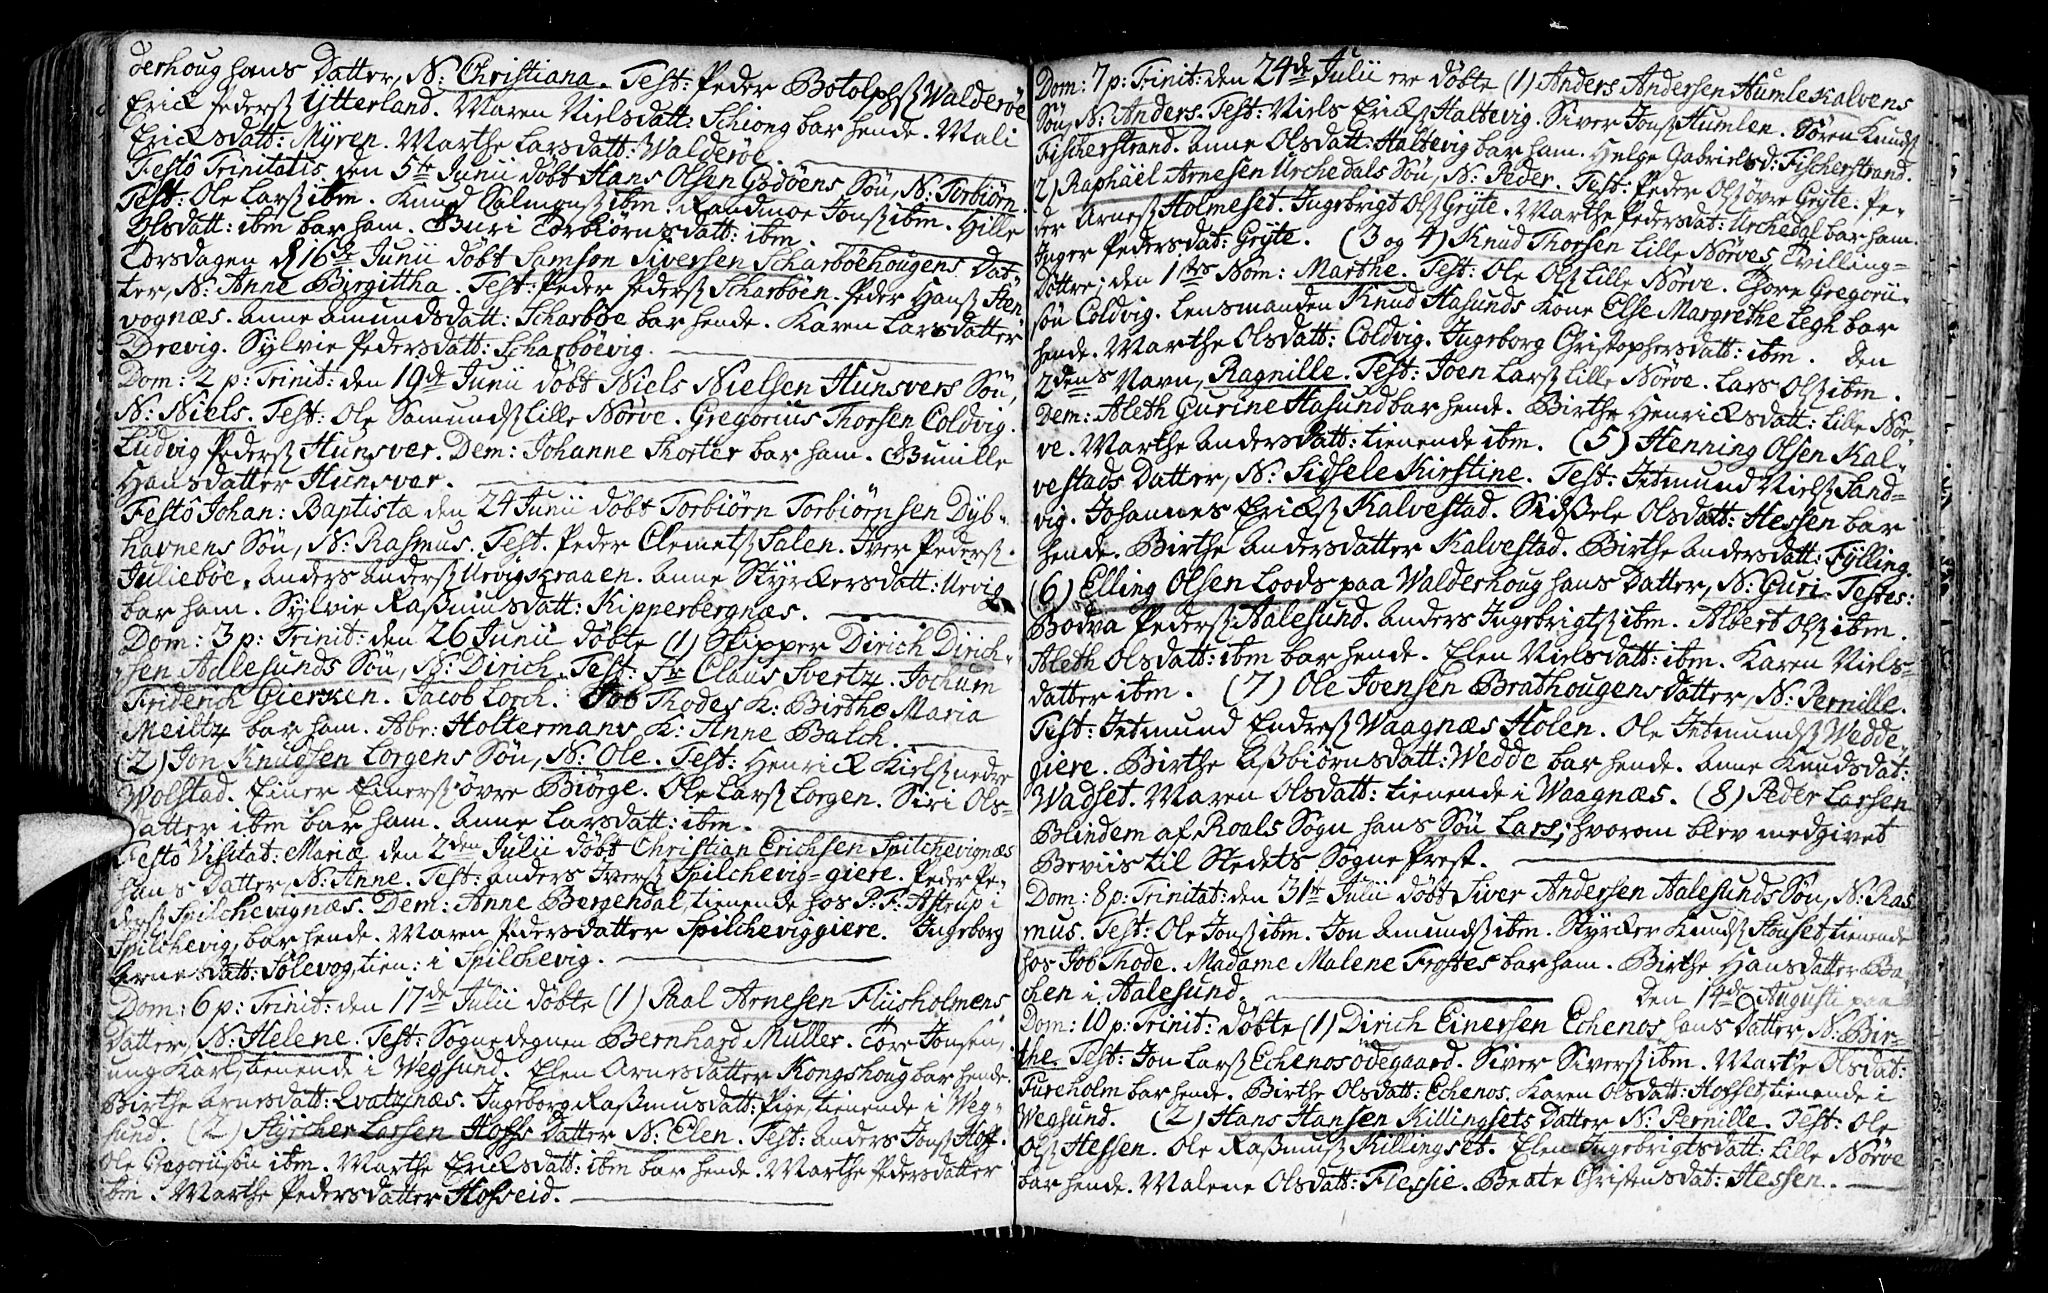 derhoug hans Datter, N: Christiana. Test: Peder Botolphs Walderöe
Erick Peders Ytterland. Maren Nielsdatt: Schiong bar hende. Mali
Ericksdatt: Myren. Marthe Larsdatt: Walderöe.
Festô Trinitatis den 5te Junii döbt Hans Olsen Godöens Sön, N: Torbiörn.
Test: Ole Lars ibm. Knud Salmons ibm. Randmoe Jons ibm. Hille
Olsdatt: ibm bar ham. Guri Torbiörnsdatt: ibm.
Torsdagen d 16de Junii döbt Samson Siversen Scharböehougens Dat-
ter, N: Anne Birgittha. Test: Peder Peders Scharböen. Peder Hans Sten
vognæs. Anne Amundsdatt: Scharböe bar hende. Karen Larsdatter
Drevig. Sylvie Pedersdatt: Scharböevig.
Dom: 2 p: Trinit: den 19de Junii döbt Niels Nielsen Hunsvers Sön,
N: Niels. Test: Ole Samunds Lille Nörve. Gregorius Thorsen Coldvig.
Ludvig Peders Hunsver. Dem: Johanne Thorter bar ham. Gunille
Hansdatter Hunsver.
Festô Johan: Baptistæ den 24 Junii döbt Torbiörn Torbiörnsen Dyb-
havnens Sön, N: Rasmus. Test. Peder Clemets Salen. Iver Peders
Julieböe. Anders Anders Urvigskraaen. Anne Styrckersdatt: Urvig
bar ham. Sylvie Rasmusdatt: Kipperbergnæs.
Dom: 3 p: Trinit: den 26 Junii döbte (1) Skipper Dirich Dirich-
sen Aalesunds Sön, N: Dirich. Test: Sr Claus Svertz. Jochum
Friderich Gierken. Jacob Lorch. Job Thodes K: Birthe Maria
Meiltz bar ham. Abr: Holtermans K: Anne Balch.
(2) Jon Knudsen Lorgens Sön, N: Ole. Test: Henrick Kiels nedre
Wolstad. Einer Einers övre Biörge. Ole Lars Lorgen. Siri Ols-
datter ibm bar ham. Anne Larsdatt: ibm.
Festô Visitat: Mariæ den 2den Julii döbt Christian Erichsen Spilchevignæs
hans Datter, N: Anne. Test: Anders Ivers Spilchevig-giere. Peder Pe-
ders Spilchevignæs. Dem: Anne Bergendal, tienende hos P. F. Astrup i
Spilchevig, bar hende. Maren Pedersdatter Spilcheviggiere. Ingeborg
Arnesdatt: Sölevog, tien: i Spilchevig.
Dom: 6 p: Trinit: den 17de Julii döbte (1) Paal Arnesen Fliisholmens
Datter, N: Helene. Test: Sognedegnen Bernhard Muller. Tore Jonsen,
ung Karl, tienende i Wegsund. Elen Arnesdatter Kongshoug bar hende.
Birthe Arnesdatt: Qvatznæs. Ingeborg Rasmusdatt: Pige, tienende i Weg-
sund. (2) Styrcher Larsen Hoffs Datter N: Elen. Test: Anders Jons Hoff.
Ole Gregoriisön ibm. Marthe Ericksdatt: ibm bar hende. Marthe Pedersdatter
ibm. Marthe Pedersdatter Hofseid.
Dom: 7 p: Trinit: den 24de Julii ere döbte (1) Anders Andersen Humlekalvens
Sön, N: Anders. Test: Niels Ericks Haltevig. Siver Jons Humlen. Sören Knuds
Fischerstrand. Anne Olsdatt: Haltevig bar ham. Helge Gabrielsd: Fischerstrand.
(2) Raphael Arnesen Urchedals Sön, N: Peder. Test: Peder Ols övre Gryte. Pe-
der Arnes Holmeset. Ingebrigt Ols Gryte. Marthe Pedersdat: Urchedal bar ham.
Inger Pedersdat: Gryte. (3 og 4) Knud Thorsen Lille Nörves Tvilling-
Döttre; den 1stes Nom: Marthe. Test: Ole Ols Lille Nörve. Thore Gregorii-
sön Coldvig. Lensmanden Knud Hasunds Kone Else Margrethe Legh bar
hende. Marthe Olsdatt: Coldvig. Ingeborg Christophersdatt: ibm. Den
2dens Navn, Ragnille. Test: Joen Lars Lille Nörve. Lars Ols ibm.
Dem: Aleth Curine Hasund bar hende. Birthe Henricksdatt: Lille Nör-
ve. Marthe Andersdatt: tienende ibm. (5) Henning Olsen Kal-
vestads Datter, N: Sidsele Kirstine. Test: Jetmund Niels Sand-
vig. Johannes Ericks Kalvestad. Sidsele Olsdatt: Hessen bar
hende. Birthe Andersdatter Kalvestad. Birthe Andersdatt: Fylling.
(6) Elling Olsen Loods paa Walderhoug hans Datter, N: Guri. Testes:
Bodva Peders Aalesund. Anders Ingebrigts ibm. Albert Ols ibm.
Aleth Olsdatt: ibm bar hende. Elen Nielsdatt: ibm. Karen Niels-
datter ibm. (7) Ole Joensen Brathougens Datter, N: Pernille.
Test: Jetmund Enders Waagnæs Holen. Ole Jetmunds Wedde-
giere. Birthe Asbiörnsdatt: Wedde bar hende. Anne Knudsdat:
Wadset. Maren Olsdatt: tienende i Waagnæs. (8) Peder Larsen
Blindem af Roals Sogn hans Sön Lars; hvorom blev medgivet
Beviis til Stedets Sogne Prest.
Dom: 8 p: Trinitat: den 31te Julii döbt Siver Andersen Aalesunds Sön, N: Ras
mus. Test: Ole Jons ibm. Jon Amunds ibm. Styrcker Knuds Honset, tienende
hos Job Thode. Madame Malene Frostes bar ham. Birthe Hansdatter Ba-
chen i Aalesund. Den 14de Augusti paa
Dom: 10 p: Trinit: döbte (1) Dirich Einersen Echenos hans Datter, N: Bir-
the. Test: Jon Lars Echenosödegaard. Siver Sivers ibm. Marthe Olsdat:
Tureholm bar hende. Birthe Olsdatt: Echenos. Karen Olsdatt: Hofslet, tienende i
Wegsund. (2) Hans Hansen Killingsets Datter N: Pernille. Test: Ole
Ols Hessen. Ole Rasmus Killingset. Elen Ingebrigtsdatt: Lille Nörve
bar hende. Malene Olsdatt: Flessie. Beate Christensdat: Hessen.